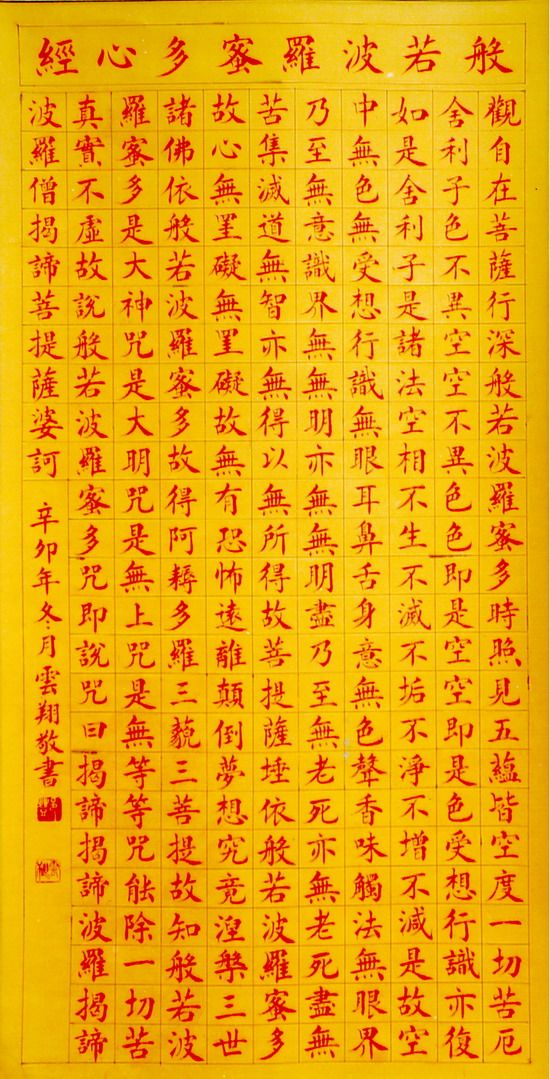 般若波羅蜜多心經
觀自在菩薩行深般若波羅蜜多時照見五蘊皆空度一切苦厄
舍利子色不異空空不異色色即是空空即是色受想行識亦復
如是舍利子是諸法空相不生不滅不垢不淨不增不減是故空
中無色無受想行識無眼耳鼻舌身意無色聲香味觸法無眼界
乃至無意識界無無明亦無無明盡乃至無老死亦無老死盡無
苦集滅道無智亦無得以無所得故菩提薩埵依般若波羅蜜多
故心無罣礙無罣礙故無有恐怖遠離顛倒夢想究竟涅槃三世
諸佛依般若波羅蜜多故得阿耨多羅三藐三菩提故知般若波
羅蜜多是大神咒是大明咒是無上咒是無等等咒能除一切苦
真實不虛故說般若波羅蜜多咒即說咒曰揭諦揭諦波羅揭諦
波羅僧揭諦菩提薩婆訶 辛卯年冬月雲翔敬書